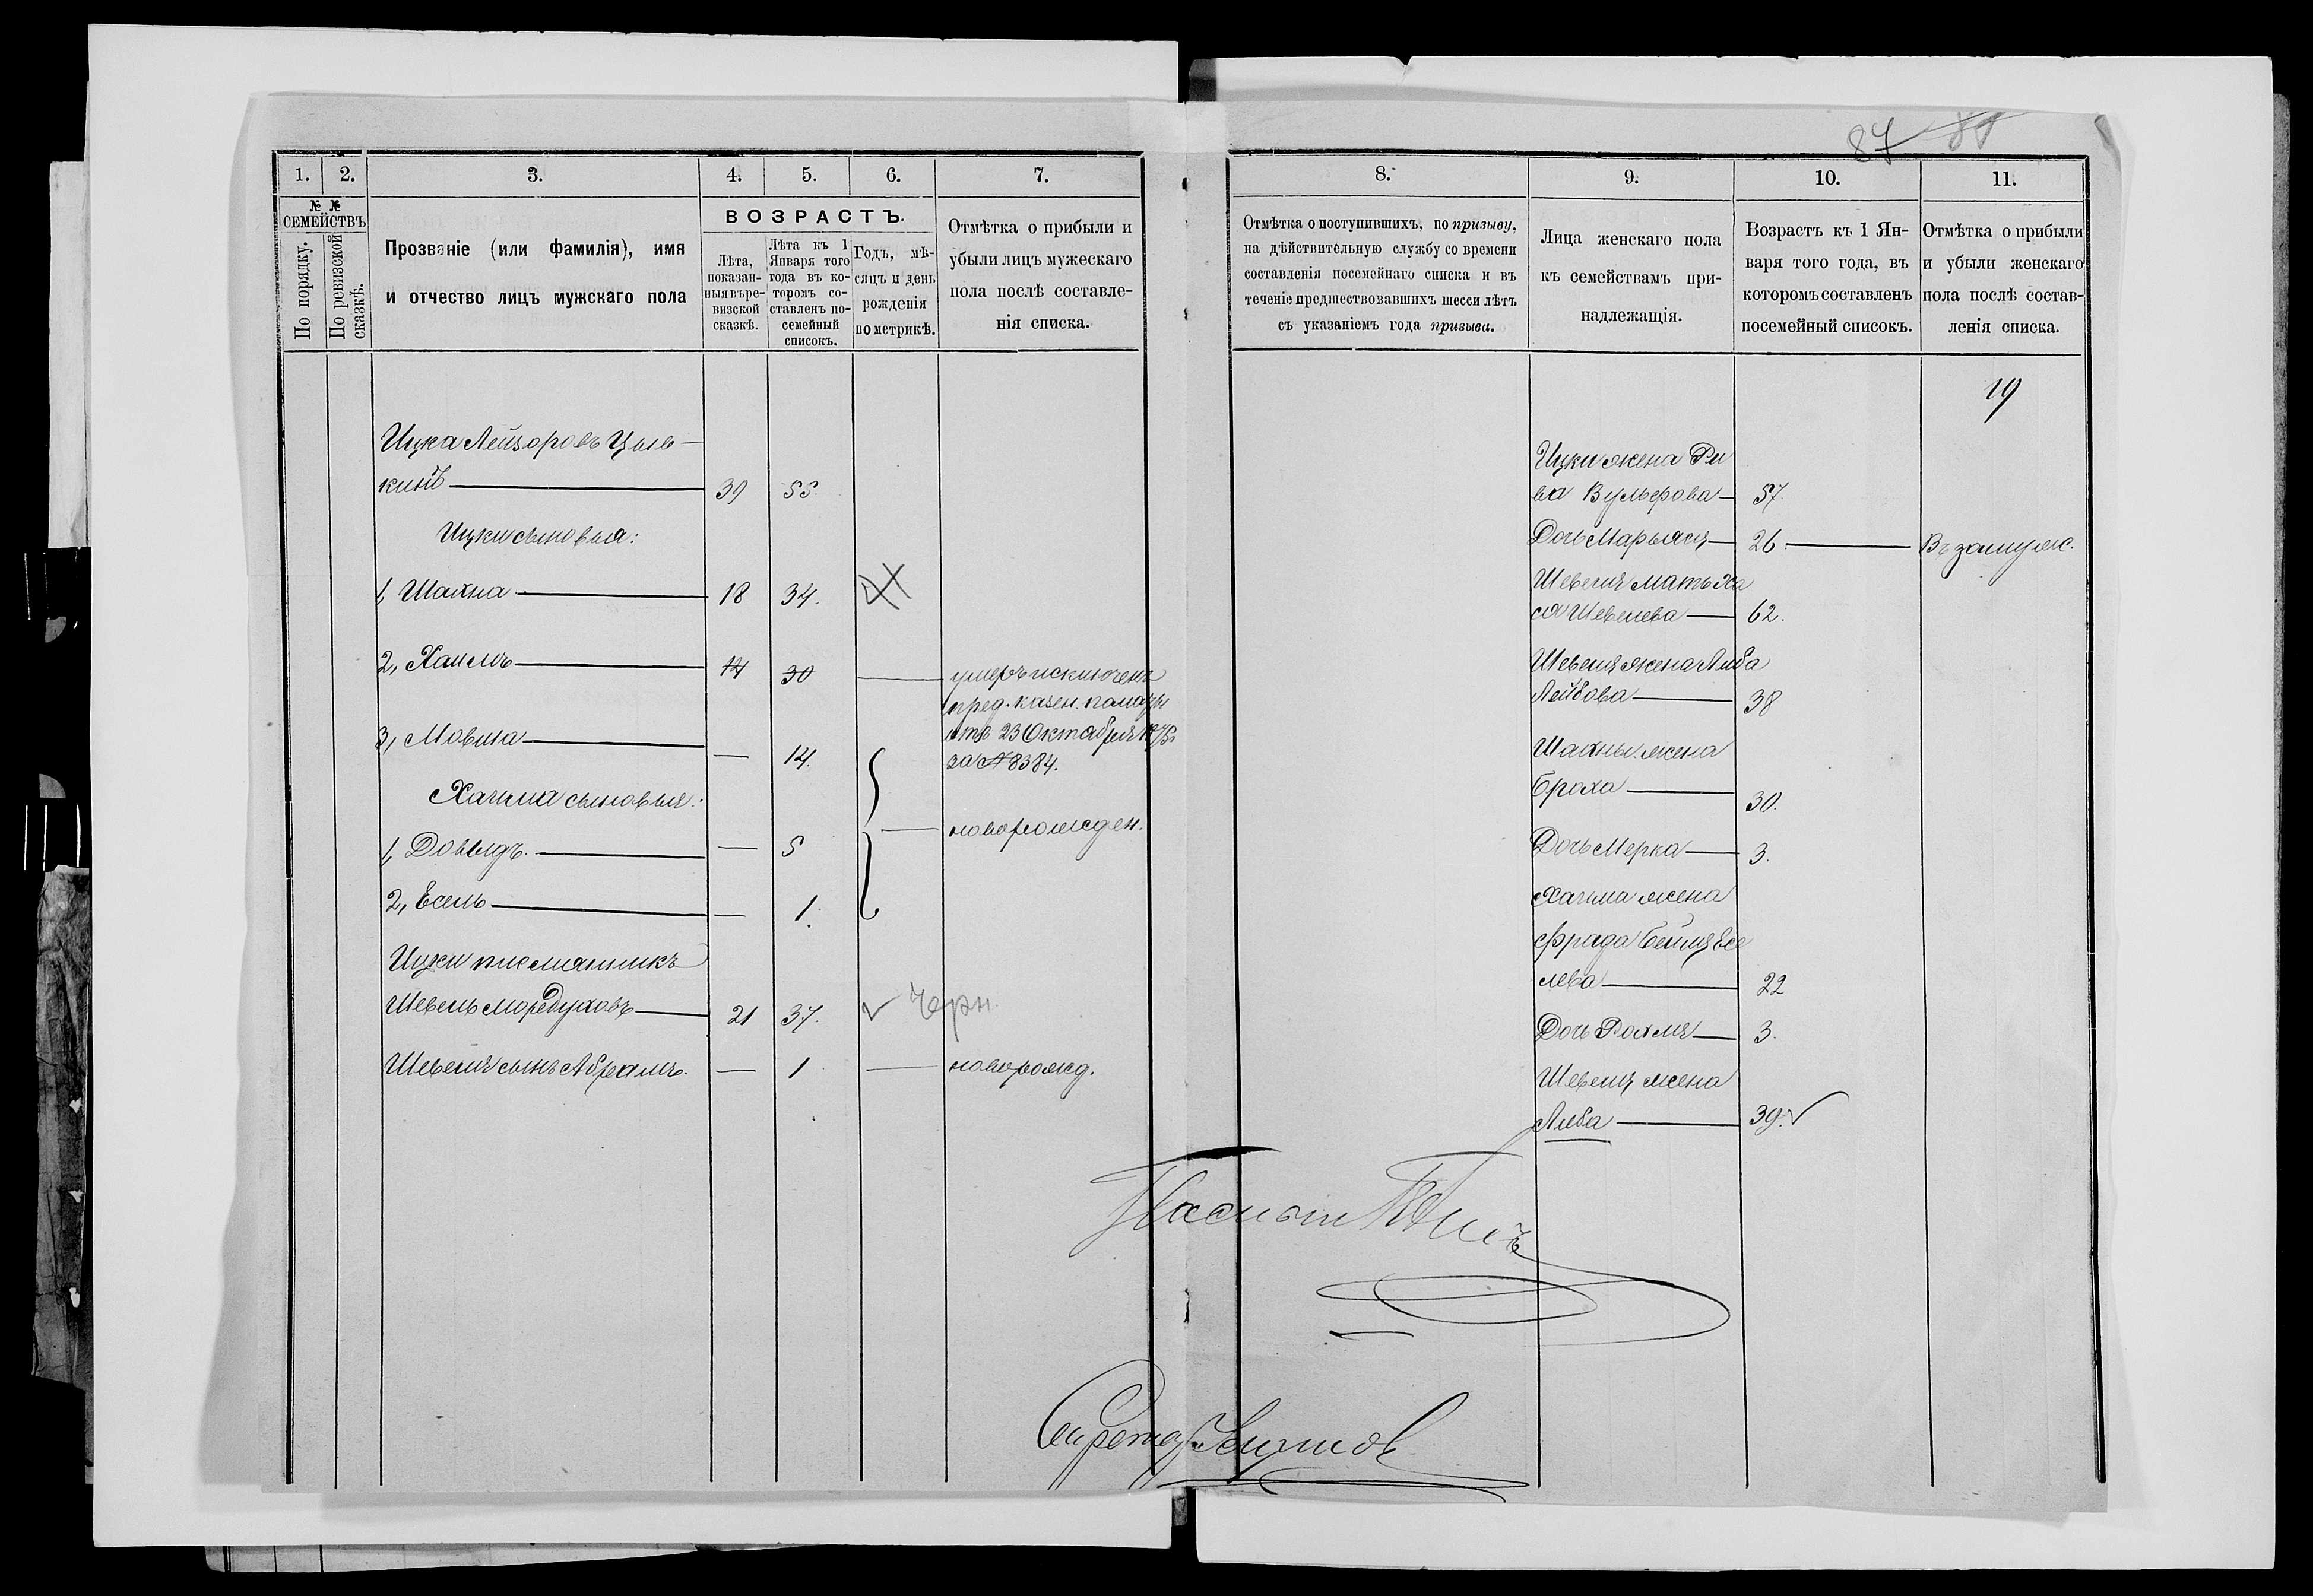 87 88
1.
2.
3.
4.
5.
6.
7.
№ №
СЕМЕЙСТВЪ
По порядку.
По ревизской
сказкѣ.
Прозваніе (или фамилія), имя
и отчество лицъ мужскаго пола
ВОЗРАСТЪ.
Лѣта,
показан-
ныя въ ре-
визской
сказкѣ.
Лѣта къ 1
Января того
года въ ко-
торомъ со-
ставленъ по-
семейный
списокъ.
Годъ, мѣ-
сяцъ и день
рожденія
по метрикѣ.
Отмѣтка о прибыли и
убыли лицъ мужескаго
пола послѣ составле-
нія списка.
Ицка Лейзоровъ Цыв-
кинъ 39 55.
Ицки сыновья:
1, Шахна 18 34.
2, Хаимъ 14 30 умеръ исключенъ
пред. казен. палаты
отъ 23 Октября 1875
за № 8384.
3, Мовша — 14.
Хаима сыновья:
новорожден.
1, Довыдъ. — 5
2, Есель — 1.
Ицки племянникъ
Шевель Мордуховъ 21 37. Черн.
Шевеля сынъ Абрамъ. — 1 — новорожд.
8.
9.
10.
11.
Отмѣтка о поступившихъ, по призыву,
на дѣйствительную службу со времени
составленія посемейнаго списка и въ
теченіе предшествовавшихъ шести лѣтъ
съ указаніемъ года призыва.
Лица женскаго пола
къ семействамъ при-
надлежащія.
Возрастъ къ 1 Ян-
варя того года, въ
которомъ составленъ
посемейный списокъ.
Отмѣтка о прибыли
и убыли женскаго
пола послѣ состав-
ленія списка.
19
Ицки жена Ри
ва Вульфова 57
Дочь Марьяся 26. Въ замуж.
Шевеля мать Ха
ся Шевелева 62.
Шевеля жена Либа
Лейбова 38
Шахны жена
Браха 30.
Дочь Мерка 3.
Хаима жена
Фрада Бейля Есе
лева 22
Дочь Рохля 3.
Шевеля жена
Либа 39.
Секретарь